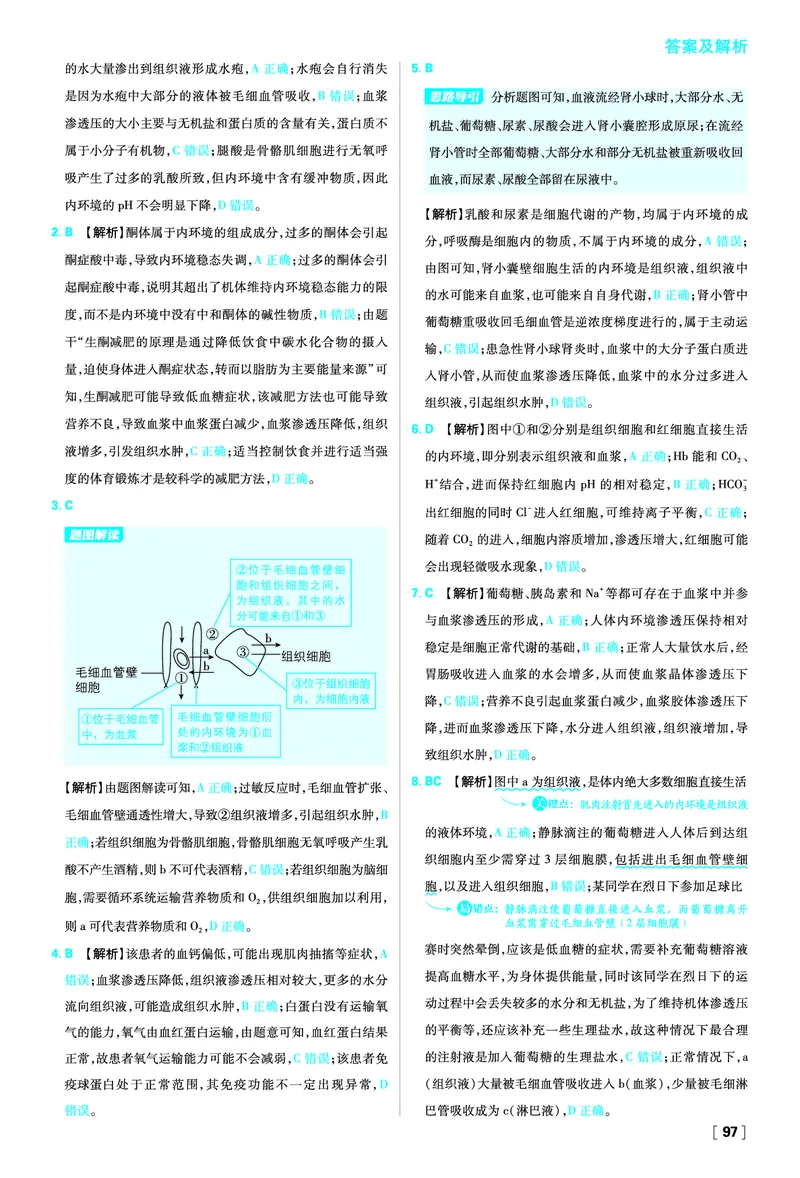 答案及解析
的水大量渗出到组织液形成水疱,A 正确;水疱会自行消失
是因为水疱中大部分的液体被毛细血管吸收,B 错误;血浆
渗透压的大小主要与无机盐和蛋白质的含量有关,蛋白质不
属于小分子有机物,C 错误;腿酸是骨骼肌细胞进行无氧呼
吸产生了过多的乳酸所致,但内环境中含有缓冲物质,因此
内环境的 pH 不会明显下降,D 错误。
2. B 【解析】酮体属于内环境的组成成分,过多的酮体会引起
酮症酸中毒,导致内环境稳态失调,A 正确;过多的酮体会引
起酮症酸中毒,说明其超出了机体维持内环境稳态能力的限
度,而不是内环境中没有中和酮体的碱性物质,B 错误;由题
干“生酮减肥的原理是通过降低饮食中碳水化合物的摄入
量,迫使身体进入酮症状态,转而以脂肪为主要能量来源”可
知,生酮减肥可能导致低血糖症状,该减肥方法也可能导致
营养不良,导致血浆中血浆蛋白减少,血浆渗透压降低,组织
液增多,引发组织水肿,C 正确;适当控制饮食并进行适当强
度的体育锻炼才是较科学的减肥方法,D 正确。
3. C
题图解读
②位于毛细血管壁细
胞和组织细胞之间,
为组织液,其中的水
分可能来自①和③
②
b
a
③
组织细胞
b
毛细血管壁
细胞
①
③位于组织细胞
内,为细胞内液
①位于毛细血管
中,为血浆
毛细血管壁细胞所
处的内环境为①血
浆和②组织液
【解析】由题图解读可知,A 正确;过敏反应时,毛细血管扩张、
毛细血管壁通透性增大,导致②组织液增多,引起组织水肿,B
正确;若组织细胞为骨骼肌细胞,骨骼肌细胞无氧呼吸产生乳
酸不产生酒精,则 b 不可代表酒精,C 错误;若组织细胞为脑细
胞,需要循环系统运输营养物质和 O₂,供组织细胞加以利用,
则 a 可代表营养物质和 O₂,D 正确。
4. B 【解析】该患者的血钙偏低,可能出现肌肉抽搐等症状,A
错误;血浆渗透压降低,组织液渗透压相对较大,更多的水分
流向组织液,可能造成组织水肿,B 正确;白蛋白没有运输氧
气的能力,氧气由血红蛋白运输,由题意可知,血红蛋白结果
正常,故患者氧气运输能力可能不会减弱,C 错误;该患者免
疫球蛋白处于正常范围,其免疫功能不一定出现异常,D
错误。
5. B
思路导引 分析题图可知,血液流经肾小球时,大部分水、无
机盐、葡萄糖、尿素、尿酸会进入肾小囊腔形成原尿;在流经
肾小管时全部葡萄糖、大部分水和部分无机盐被重新吸收回
血液,而尿素、尿酸全部留在尿液中。
【解析】乳酸和尿素是细胞代谢的产物,均属于内环境的成
分,呼吸酶是细胞内的物质,不属于内环境的成分,A 错误;
由图可知,肾小囊壁细胞生活的内环境是组织液,组织液中
的水可能来自血浆,也可能来自自身代谢,B 正确;肾小管中
葡萄糖重吸收回毛细血管是逆浓度梯度进行的,属于主动运
输,C 错误;患急性肾小球肾炎时,血浆中的大分子蛋白质进
入肾小管,从而使血浆渗透压降低,血浆中的水分过多进入
组织液,引起组织水肿,D 错误。
6. D 【解析】图中①和②分别是组织细胞和红细胞直接生活
的内环境,即分别表示组织液和血浆,A 正确;Hb 能和 CO₂、
H⁺结合,进而保持红细胞内 pH 的相对稳定,B 正确;HCO₃⁻
出红细胞的同时 Cl⁻进入红细胞,可维持离子平衡,C 正确;
随着 CO₂ 的进入,细胞内溶质增加,渗透压增大,红细胞可能
会出现轻微吸水现象,D 错误。
7. C 【解析】葡萄糖、胰岛素和 Na⁺等都可存在于血浆中并参
与血浆渗透压的形成,A 正确;人体内环境渗透压保持相对
稳定是细胞正常代谢的基础,B 正确;正常人大量饮水后,经
胃肠吸收进入血浆的水会增多,从而使血浆晶体渗透压下
降,C 错误;营养不良引起血浆蛋白减少,血浆胶体渗透压下
降,进而血浆渗透压下降,水分进入组织液,组织液增加,导
致组织水肿,D 正确。
8. BC 【解析】图中 a 为组织液,是体内绝大多数细胞直接生活
关键点:肌肉注射首先进入的内环境是组织液
的液体环境,A 正确;静脉滴注的葡萄糖进入人体后到达组
织细胞内至少需穿过 3 层细胞膜,包括进出毛细血管壁细
胞,以及进入组织细胞,B 错误;某同学在烈日下参加足球比
易错点:静脉滴注使葡萄糖直接进入血浆,而葡萄糖离开
血浆需穿过毛细血管壁(2 层细胞膜)
赛时突然晕倒,应该是低血糖的症状,需要补充葡萄糖溶液
提高血糖水平,为身体提供能量,同时该同学在烈日下的运
动过程中会丢失较多的水分和无机盐,为了维持机体渗透压
的平衡等,还应该补充一些生理盐水,故这种情况下最合理
的注射液是加入葡萄糖的生理盐水,C 错误;正常情况下,a
(组织液)大量被毛细血管吸收进入 b(血浆),少量被毛细淋
巴管吸收成为 c(淋巴液),D 正确。
[ 97 ]